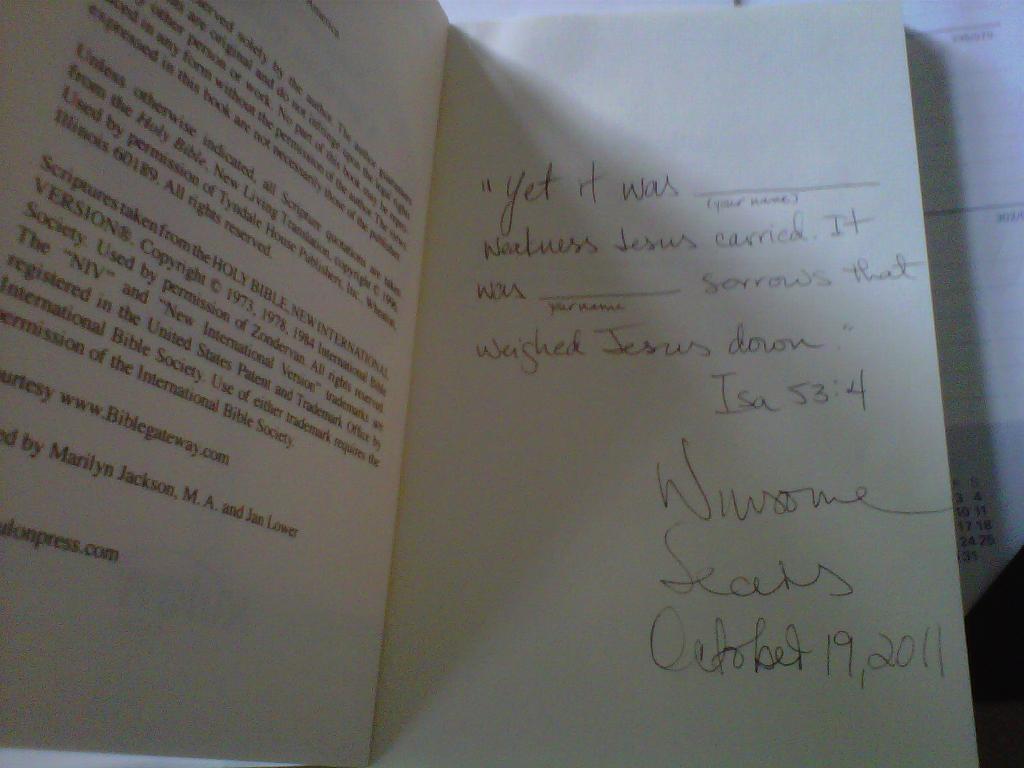 America
served solely by the author. The author guarantees
are original and do not infringe upon the legal rights
other person or work. No part of this book may be
in any form without the permission of the author. The
expressed in this book are not necessarily those of the publisher.
Unless otherwise indicated, all Scripture quotations are taken
from the Holy Bible, New Living Translation, copyright © 1996.
Used by permission of Tyndale House Publishers, Inc., Wheaton,
Illinois 60189. All rights reserved.
Scriptures taken from the HOLY BIBLE, NEW INTERNATIONAL
VERSION®. Copyright © 1973, 1978, 1984 International Bible
Society. Used by permission of Zondervan. All rights reserved.
The "NIV" and "New International Version" trademarks are
registered in the United States Patent and Trademark Office by
International Bible Society. Use of either trademark requires the
permission of the International Bible Society.
urtesy www.Biblegateway.com
ed by Marilyn Jackson, M. A. and Jan Lower
ulonpress.com
"Yet it was
(your name)
weakness Jesus carried. It
was sorrows that
your name
weighed Jesus down."
Isa 53:4
Winsome
Sears
October 19, 2011
S
3 4
10 11
17 18
24 25
31